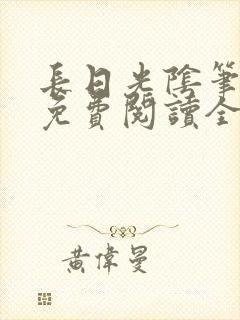 長日光陰筆
免費閱讀全
黃偉曼